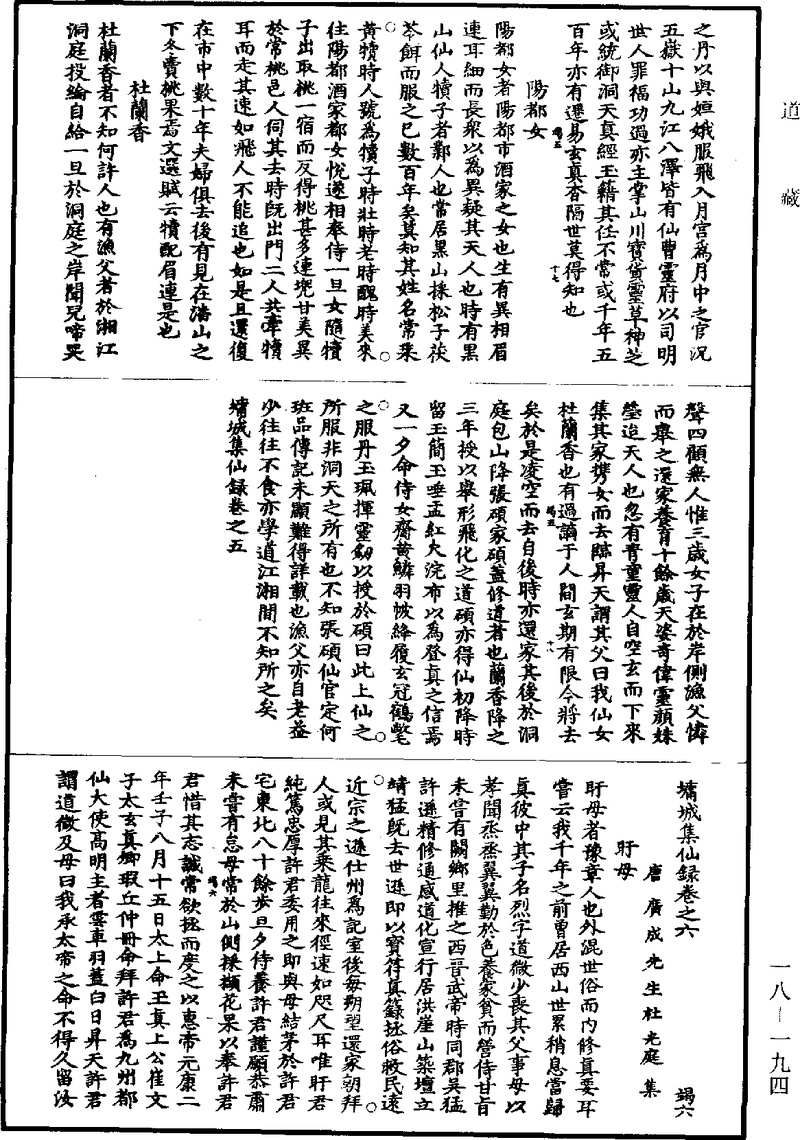 道藏
之丹以與姮娥服飛入月宮爲月中之官況
五嶽十山九江八澤皆有仙曹靈府以司明
世人罪福功過亦主掌山川寶貨靈草神芝
或統御洞天真經玉籍其任不常或千年五
百年亦有遷易玄真杳隔世莫得知也
竭五
十七
陽都女
陽都女者陽都市酒家之女也生有異相眉
連耳細而長衆以爲異疑其天人也時有黑
山仙人犢子者鄴人也常居黑山採松子茯
苓餌而服之已數百年矣莫知其姓名常乘
黃犢時人號爲犢子時壯時老時醜時美來
往陽都酒家都女悅遂相奉侍一旦女隨犢
子出取桃一宿而反得桃甚多連兜甘美異
於常桃邑人伺其去時旣出門二人共牽犢
耳而走其速如飛人不能追也如是且還復
在市中數十年夫婦俱去後有見在潘山之
下冬賣桃果焉文選賦云犢配眉連是也
杜蘭香
杜蘭香者不知何許人也有漁父者於湘江
洞庭投綸自給一旦於洞庭之岸聞兒啼哭
聲四顧無人惟三歲女子在於岸側漁父憐
而舉之還家養育十餘歲天姿奇偉靈顏姝
瑩迨天人也忽有青童靈人自空玄而下來
集其家攜女而去臨昇天謂其父曰我仙女
杜蘭香也有過謫于人間玄期有限今將去
竭五
十八
矣於是凌空而去自後時亦還家其後於洞
庭包山降張碩家碩蓋修道者也蘭香降之
三年授以舉形飛化之道碩亦得仙初降時
留玉簡玉唾盂紅大浣布以爲登真之信焉
又一夕命侍女齎黃鱗羽帔絳履玄冠鶴氅
之服丹玉珮揮靈劒以授於碩曰此上仙之
所服非洞天之所有也不知張碩仙官定何
班品傳記未顯難得詳載也漁父亦自老益
少往往不食亦學道江湘間不知所之矣
墉城集仙錄卷之五
墉城集仙錄卷之六
竭六
唐廣成先生杜光庭集
盱母
盱母者豫章人也外混世俗而內修真要耳
嘗云我千年之前曾居西山世累稍息當歸
真彼中其子名烈字道微少喪其父事母以
孝聞烝烝翼翼勤於色養家貧而營侍甘旨
未嘗有闕鄉里推之西晉武帝時同郡吳猛
許遜精修通感道化宣行居洪崖山築壇立
靖猛旣去世遜即以寶符真籙拯俗救民遠
近宗之遜仕州爲記室後每朔望還家朝拜
人或見其乘龍往來徑速如咫尺耳唯盱君
純篤忠厚許君委用之即與母結茅於許君
宅東北八十餘步旦夕侍養許君謹願恭肅
未嘗有怠母常於山側採擷花果以奉許君
竭六
君惜其志誠常欲拯而度之以惠帝元康二
年壬子八月十五日太上命玉真上公崔文
子太玄真卿瑕丘仲冊命拜許君爲九州都
仙大使高明主者雲車羽蓋白日昇天許君
謂道微及母曰我承太帝之命不得久留汝
一八-一九四